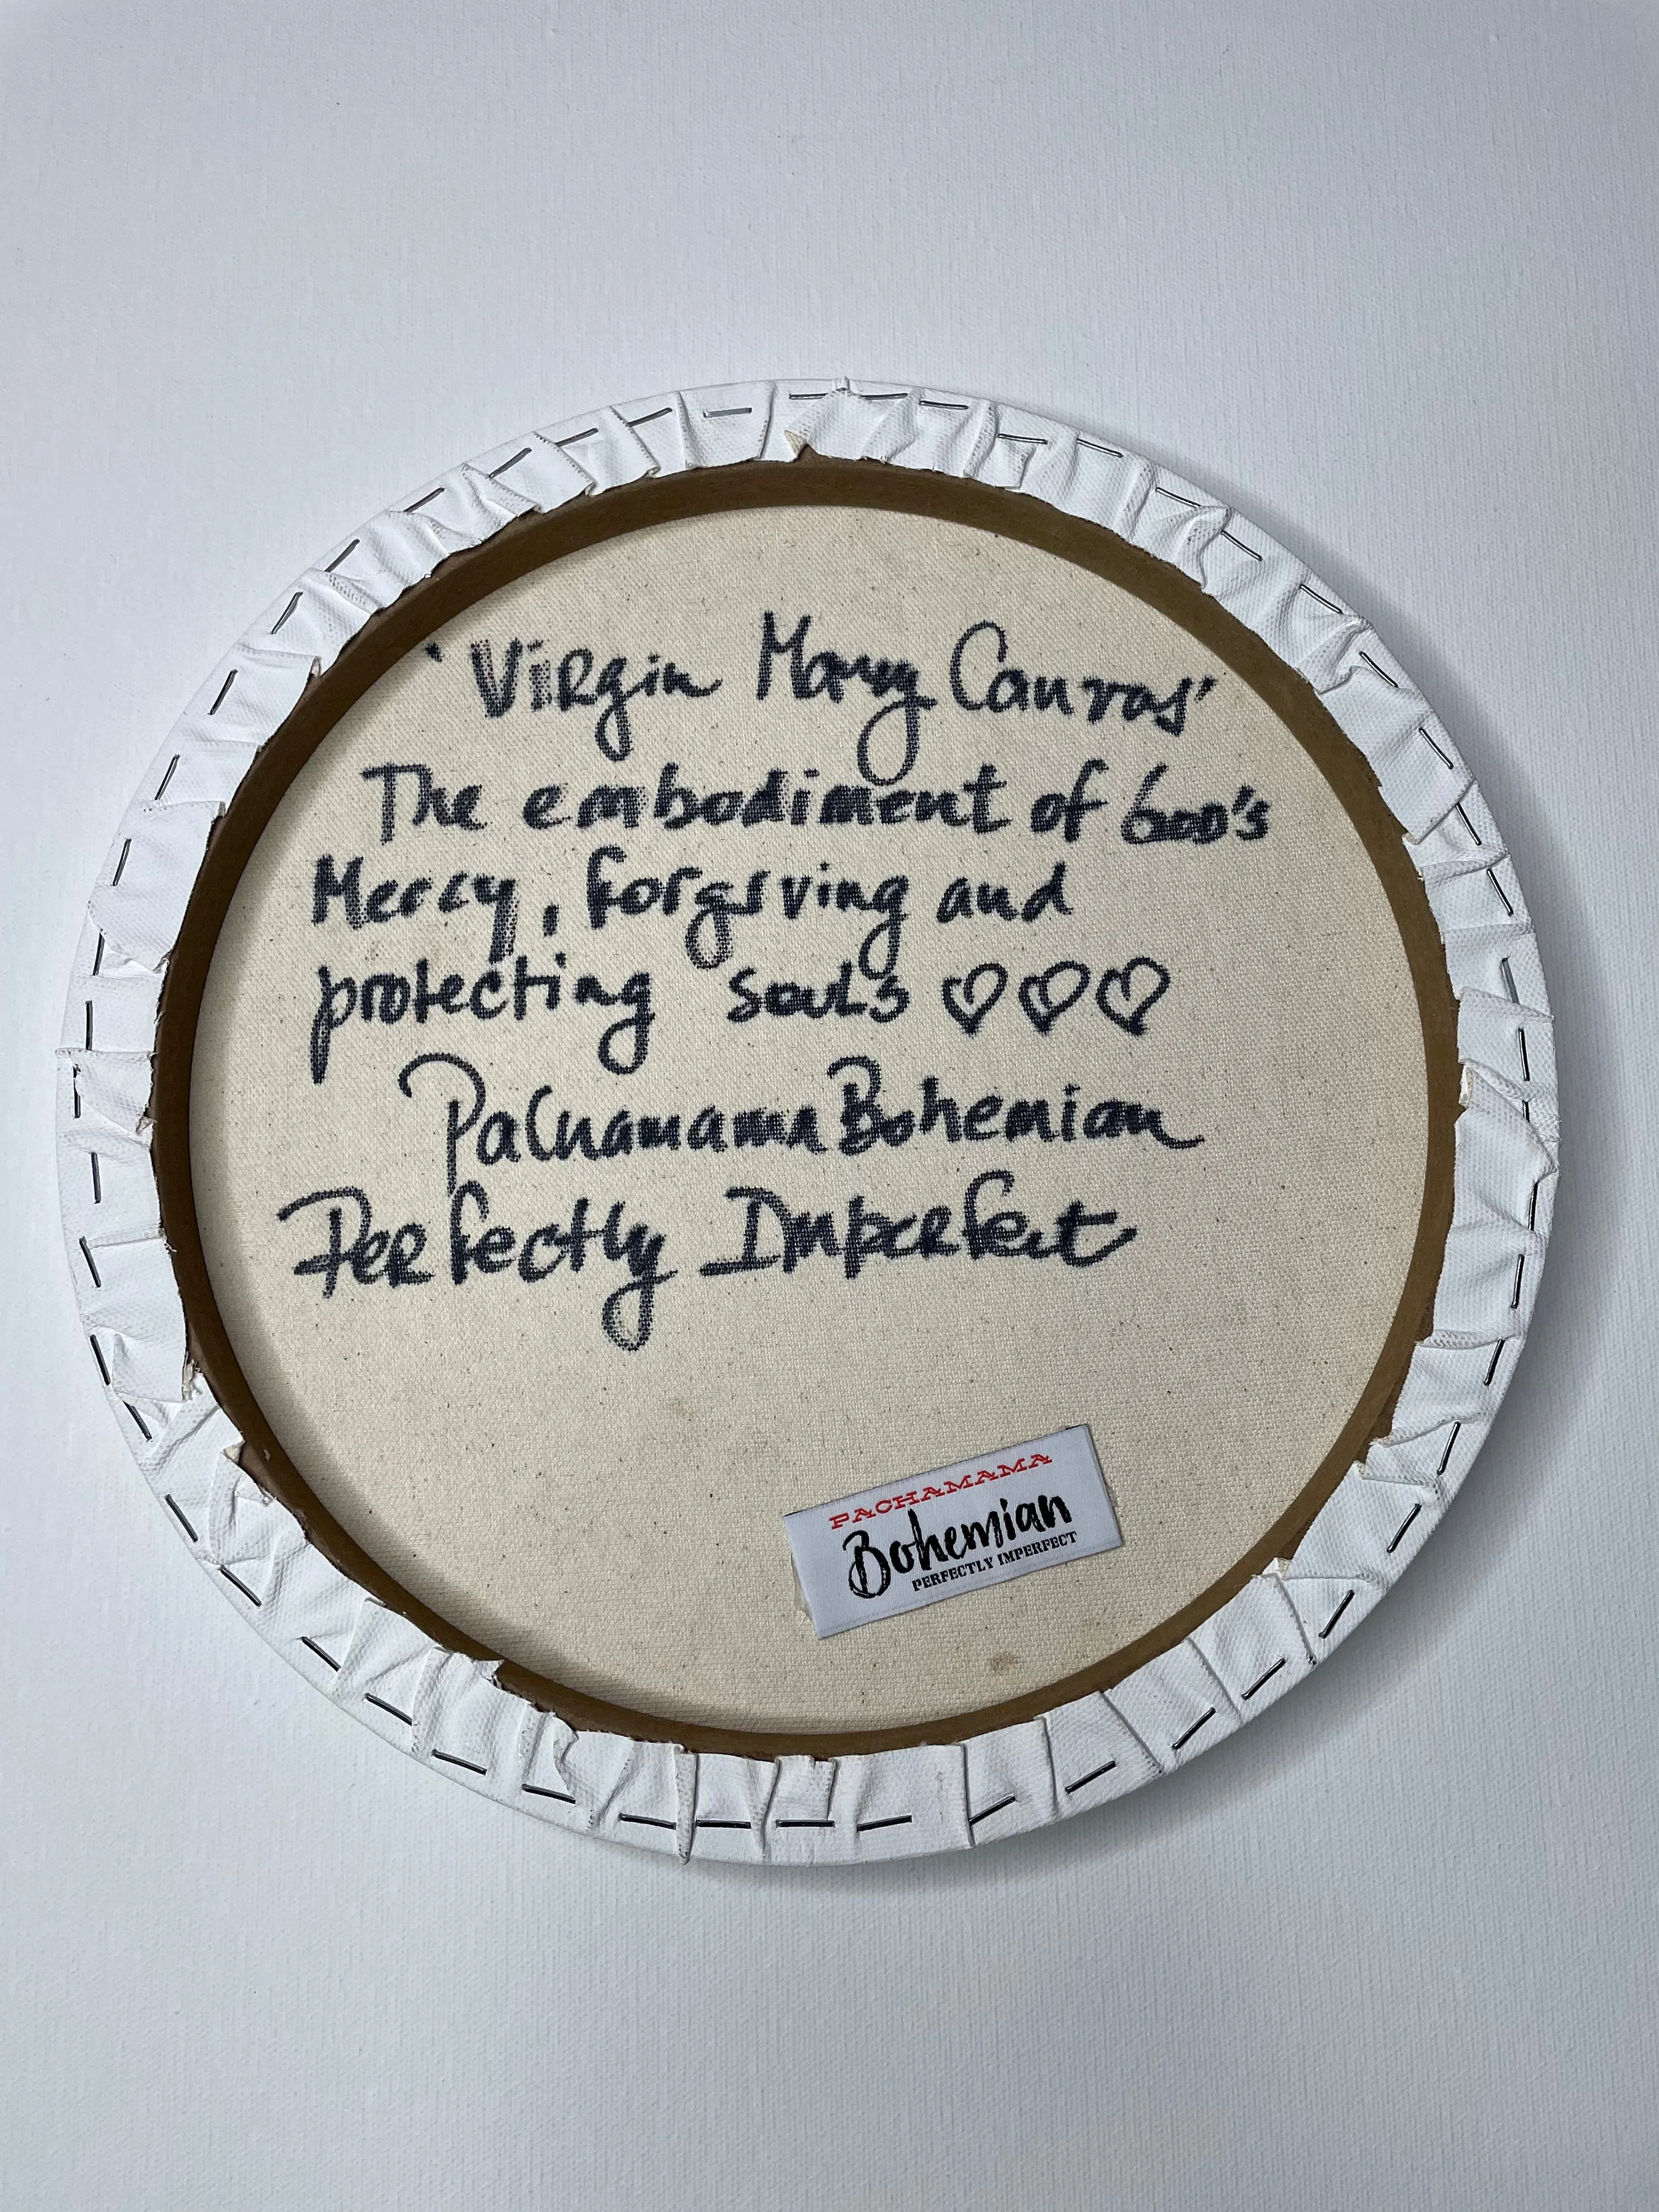 'Virgin Mary Canvas'
The embodiment of God's
Mercy, forgiving and
protecting souls ♡♡♡
Pachamama Bohemian
Perfectly Imperfect
PACHAMAMA
Bohemian
PERFECTLY IMPERFECT